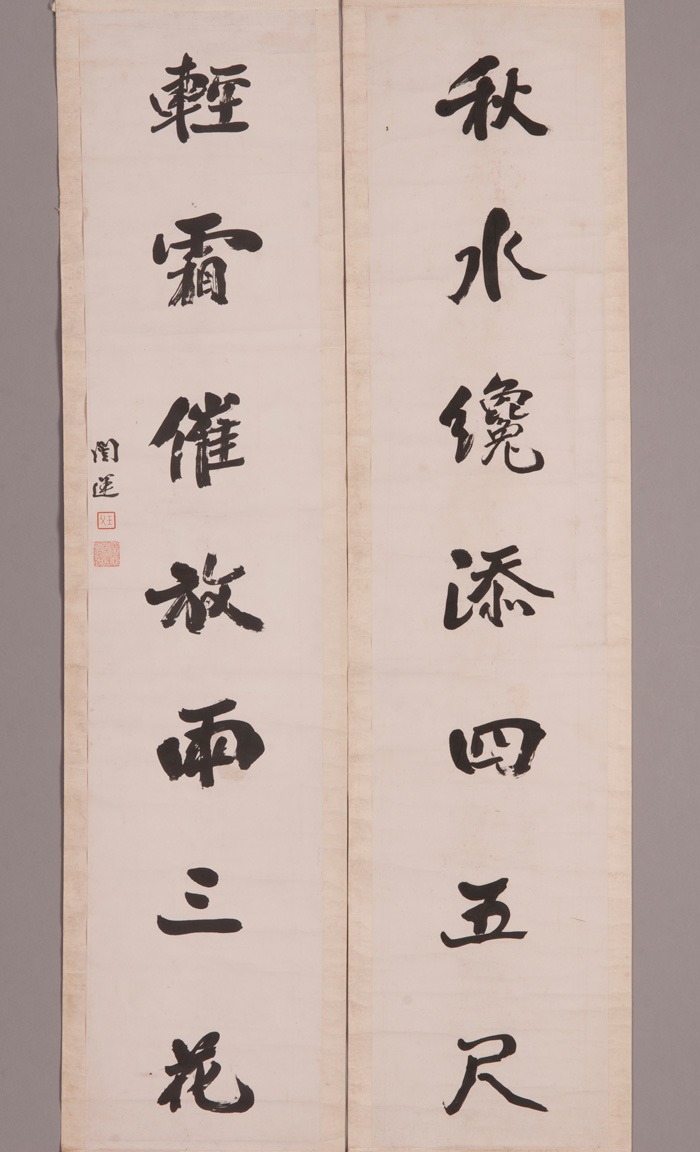 秋水纔添四五尺
輕霜催放兩三花
闓運